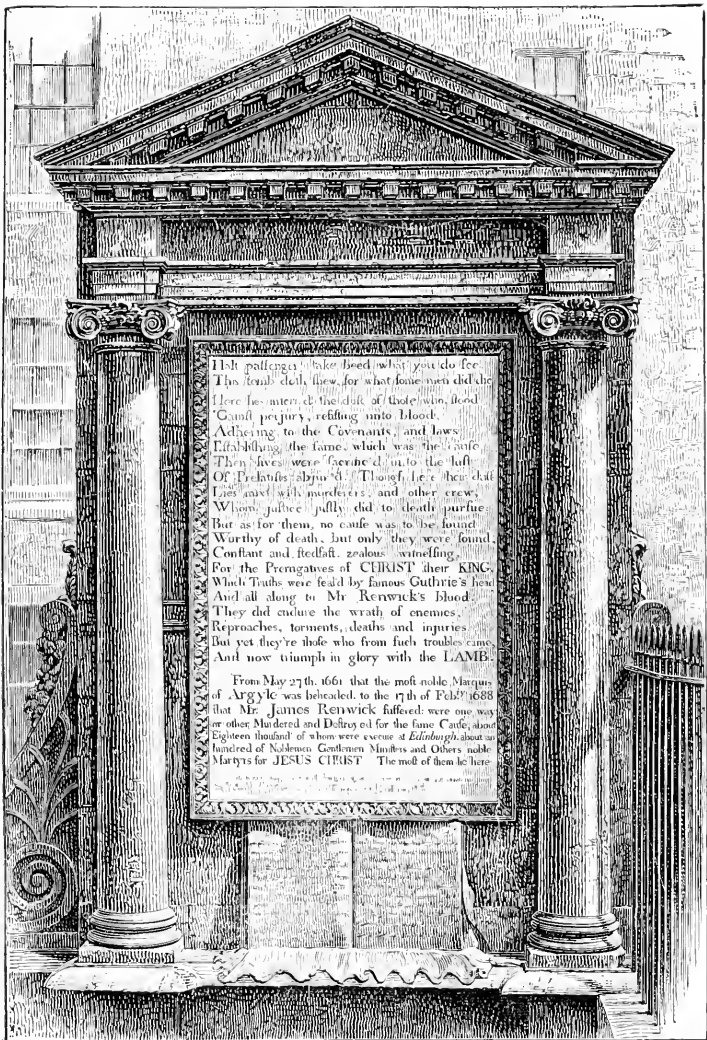 Halt passenger take heed what you do see
This tomb doth shew, for what some men did die
Here lies interr'd the dust of those who stood
'Gainst perjury, resisting unto blood.
Adhering to the Covenants, and laws
Establishing the same, which was the cause
Then lives were sacrific'd unto the lust
Of Prelatists abjur'd. Though here their dust
Lies mixt with murderers, and other crew,
Whom justice justly did to death pursue:
But as for them, no cause was to be found
Worthy of death, but only they were found,
Constant and stedfast, zealous witnessing,
For the Prerogatives of CHRIST their KING.
Which Truths were seal'd by famous Guthrie's head
And all along to Mr Renwick's blood.
They did endure the wrath of enemies,
Reproaches, torments, deaths and injuries.
But yet they're those who from such troubles came,
And now triumph in glory with the LAMB.
From May 27th. 1661 that the most noble Marquis
of Argyle was beheaded, to the 17th of Febry 1688
that Mr. James Renwick suffered: were one way
or other, Murdered and Destroyed for the same Cause, about
Eighteen thousand of whom were execute at Edinburgh, about an
hundred of Noblemen Gentlemen Ministers and Others noble
Martyrs for JESUS CHRIST The most of them lie here